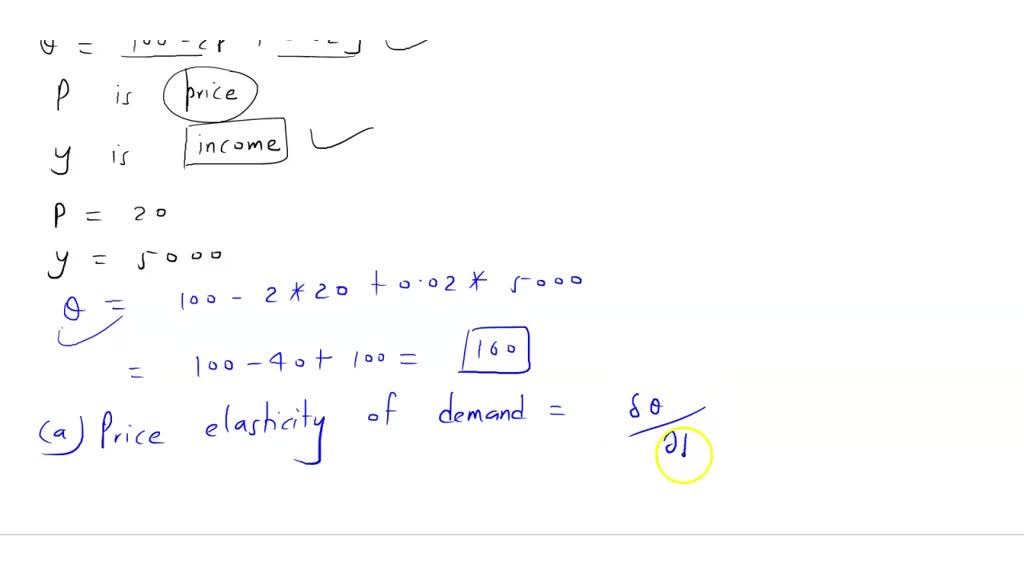 P is price
y is income
P = 20
y = 5000
θ = 100 - 2 * 20 + 0.02 * 5000
= 100 - 40 + 100 = 160
(a) Price elasticity of demand = δθ